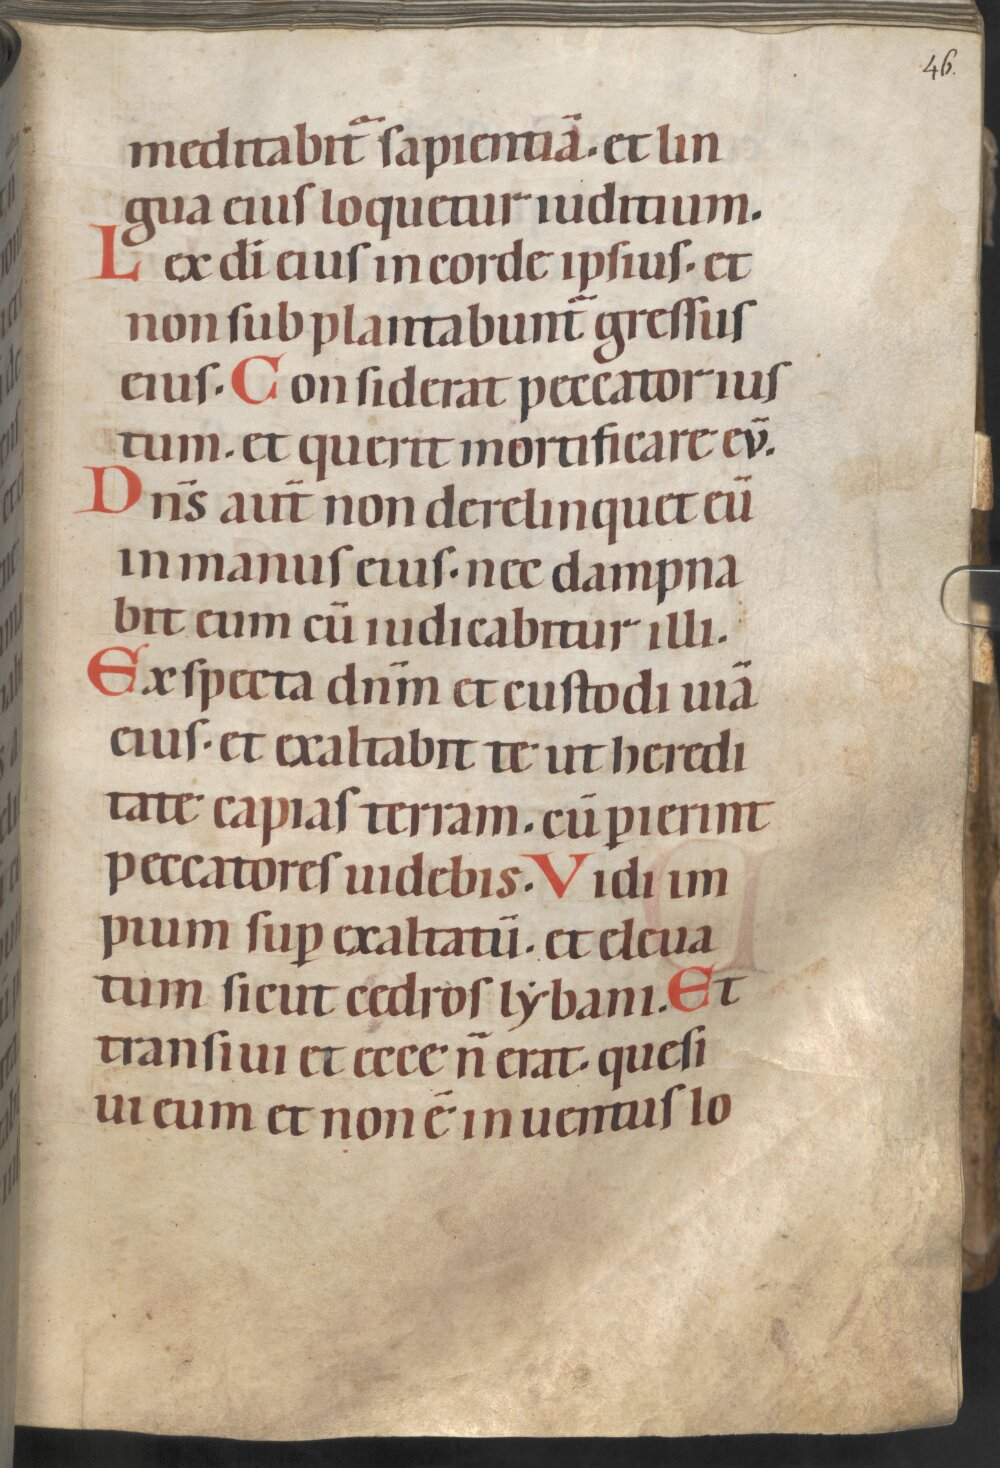 46.
meditabit᷑ sapientiā. et lin
gua eius loquetur iuditium.
Lex dī eius in corde ipsius. et
non subplantabunt᷑ gressus
eius. Considerat peccator ius
tum. et querit mortificare eū.
Dn̄s aut̄ non derelinquet eū
in manus eius. nec dampna
bit eum cū iudicabitur illi.
Exspecta dn̄m et custodi uiā
eius. et exaltabit te ut heredi
tate capias terram. cū ꝑierint
peccatores uidebis. Vidi im
pium suꝑ exaltatū. et eleua
tum sicut cedros lẏbani. Et
transiui et ecce n̄ erat. quesi
ui eum et non ē inuentus lo